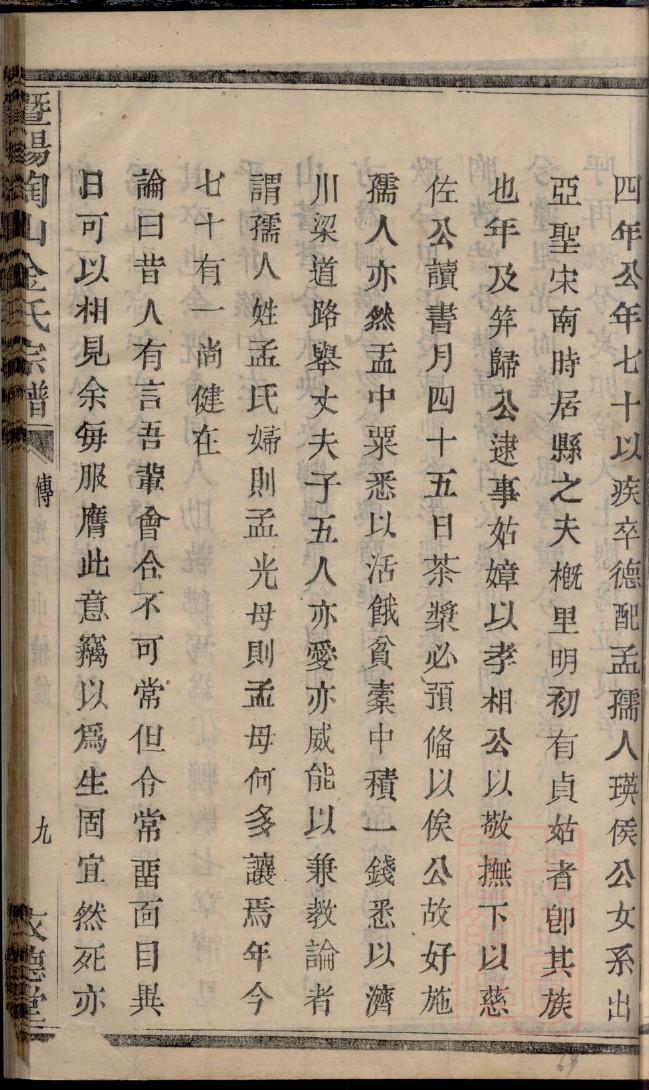 四年公年七十以疾卒德配孟孺人瑛侯公女系出
亞聖宋南時居縣之夫槪里明初有貞姑者卽其族
也年及笄歸公逮事姑嫜以孝相公以敬撫下以慈
佐公讀書月四十五日茶漿必預偹以俟公故好施
孺人亦然盂中粟悉以活餓貧橐中積一錢悉以濟
川梁道路舉丈夫子五人亦愛亦威能以兼教論者
謂孺人姓孟氏婦則孟光母則孟母何多讓焉年今
七十有一尚健在
論曰昔人有言吾輩會合不可常但令常畱面目異
日可以相見余每服膺此意竊以爲生固宜然死亦
暨陽陶山金氏宗譜 傳 九 文德堂